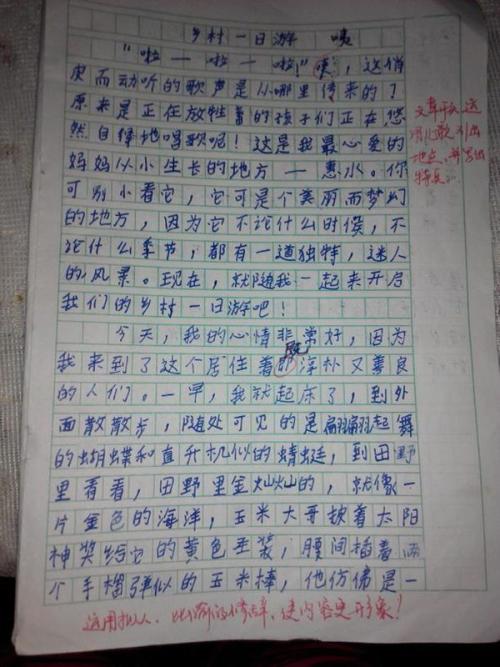 乡村一日游
“啦一啦一啦!”噢,这俏
皮而动听的歌声是从哪里传来的?
原来是正在放牲着的孩子们正在悠
然自得地唱歌呢!这是我最心爱的
妈妈从小生长的地方—惠水。你
可别小看它,它可是个美丽而梦幻
的地方,因为它不论什么时候,不
论什么季节,都有一道独特,迷人
的风景。现在,就随我一起来开启
我们的乡村一日游吧!
今天,我的心情非常好,因为
我来到了这个居住着既淳朴又善良
的人们。一早,我就起床了,到外
面散散步,随处可见的是翩翩起舞
的蝴蝶和直升机似的蜻蜓,到田野
里看看,田野里金灿灿的,就像一
片金色的海洋,玉米大哥披着太阳
神奖给它的黄色圣装,腰间插着两
个手榴弹似的玉米棒,他仿佛是一
文章开头
引出
地点,并写出
特点。
运用拟人、比喻的修辞,使内容更形象!